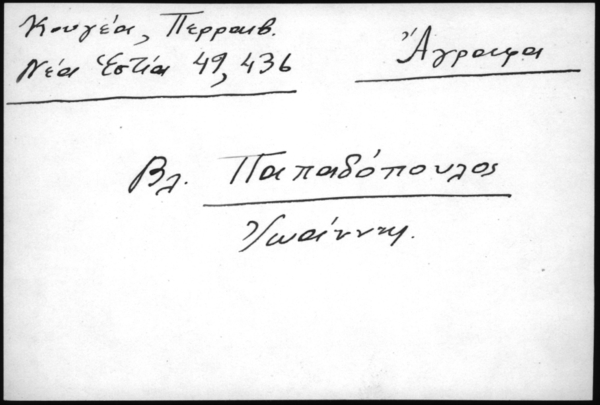 Κουγέα, Περραιβ.
Νέα Ἑστία 49, 436
Ἄγραφα
Βλ. Παπαδόπουλος
Ἰωάννης.